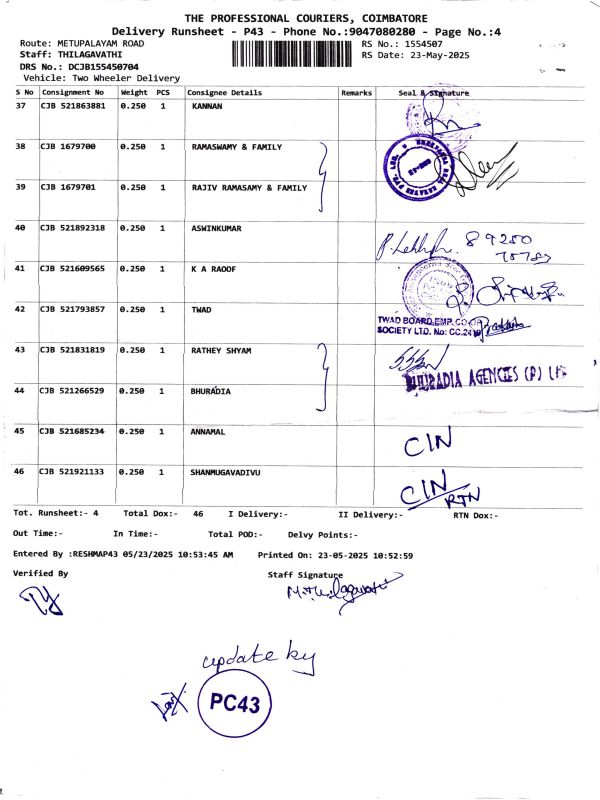 THE PROFESSIONAL COURIERS, COIMBATORE
Delivery Runsheet - P43 - Phone No.:9047080280 - Page No.:4
Route: METUPALAYAM ROAD RS No.: 1554507
Staff: THILAGAVATHI RS Date: 23-May-2025
DRS No.: DCJB155450704
Vehicle: Two Wheeler Delivery
S No Consignment No Weight PCS Consignee Details Remarks Seal & Signature
37 CJB 521863881 0.250 1 KANNAN
38 CJB 1679700 0.250 1 RAMASWAMY & FAMILY
39 CJB 1679701 0.250 1 RAJIV RAMASAMY & FAMILY
40 CJB 521892318 0.250 1 ASWINKUMAR
89250
75787
41 CJB 521609565 0.250 1 K A RAOOF
42 CJB 521793857 0.250 1 TWAD
TWAD BOARD.EMP.CO.OP
SOCIETY LTD. No: CC.2419
43 CJB 521831819 0.250 1 RATHEY SHYAM
BHURADIA AGENCIES (P) LTD
44 CJB 521266529 0.250 1 BHURADIA
45 CJB 521685234 0.250 1 ANNAMAL CIN
46 CJB 521921133 0.250 1 SHANMUGAVADIVU CIN
RTN
Tot. Runsheet:- 4 Total Dox:- 46 I Delivery:- II Delivery:- RTN Dox:-
Out Time:- In Time:- Total POD:- Delvy Points:-
Entered By :RESHMAP43 05/23/2025 10:53:45 AM Printed On: 23-05-2025 10:52:59
Verified By Staff Signature
M.Thilagavathi
update by
PC43